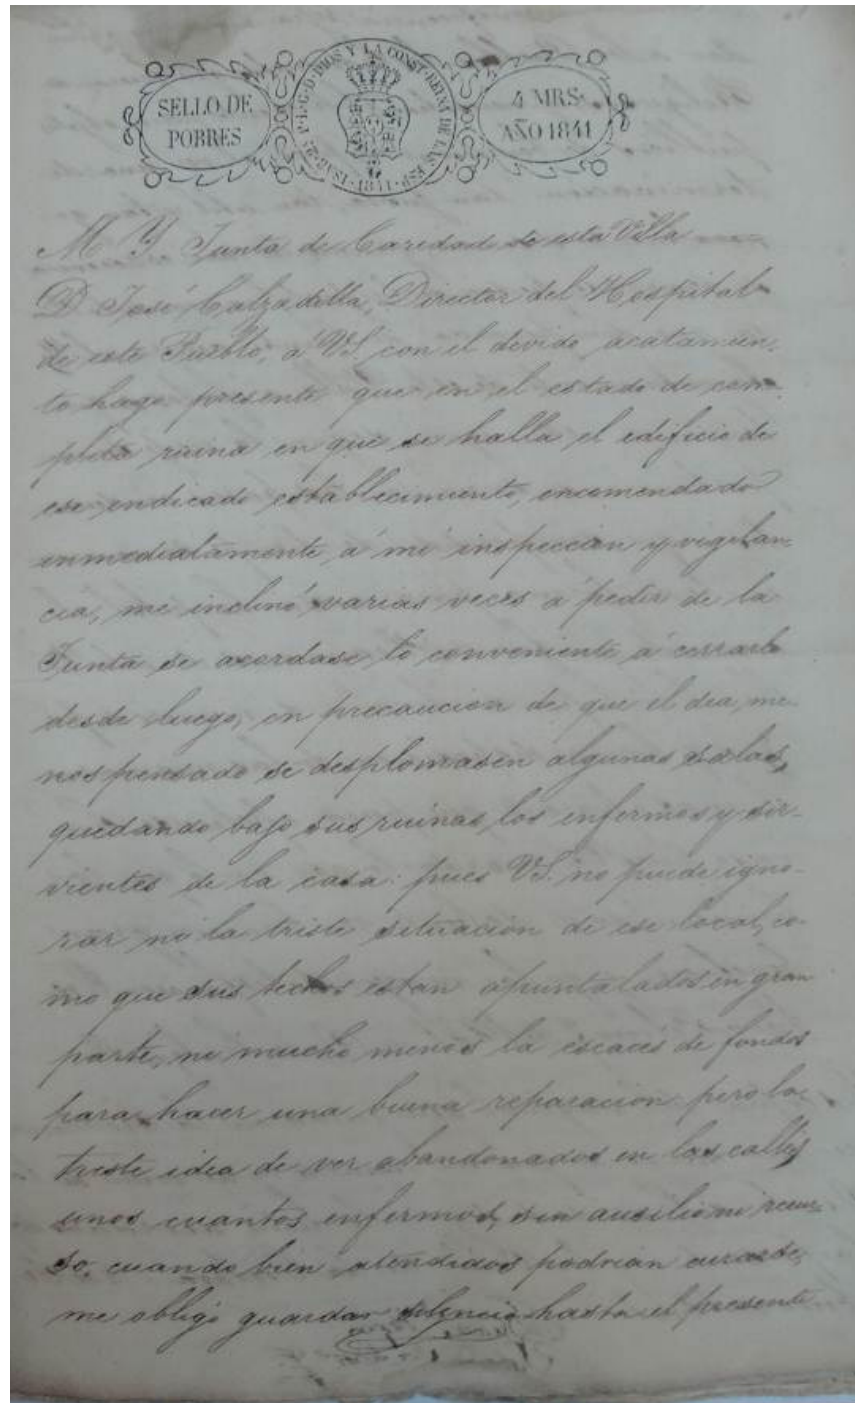 SELLO DE
POBRES
ISAB. 2ª P. L. G. D. DIOS Y LA CONST. REINA DE LAS ESP. 1841
4 MRS.
AÑO 1841
M. Y. Junta de Caredad de esta Villa
D. José Calzadilla, Director del Hospital
de este Pueblo, a VS. con el devido acatamien-
to hago presente que en el estado de com-
pleta ruina en que se halla el edificio de
ese endicado establecimiento, encomendado
inmediatamente á mi inspeccion y vigilan-
cia, me incliné varias veces á pedir de la
Junta se acordase lo conveniente á cerrarlo
desde luego, en precaucion de que el dia me-
nos pensado se desplomasen algunas salas,
quedando bajo sus ruinas los enfermos y sir-
vientes de la casa: pues VS. no puede igno-
rar no la triste situacion de ese local, co-
mo que sus techos estan apuntalados en gran
parte, ni mucho menos la escaces de fondos
para hacer una buena reparacion pero la
triste idea de ver abandonados en las calles
unos cuantos enfermos, sin ausilio ni recur-
so, cuando bien atendidos podrian curarse,
me obligó guardar silencio hasta el presente